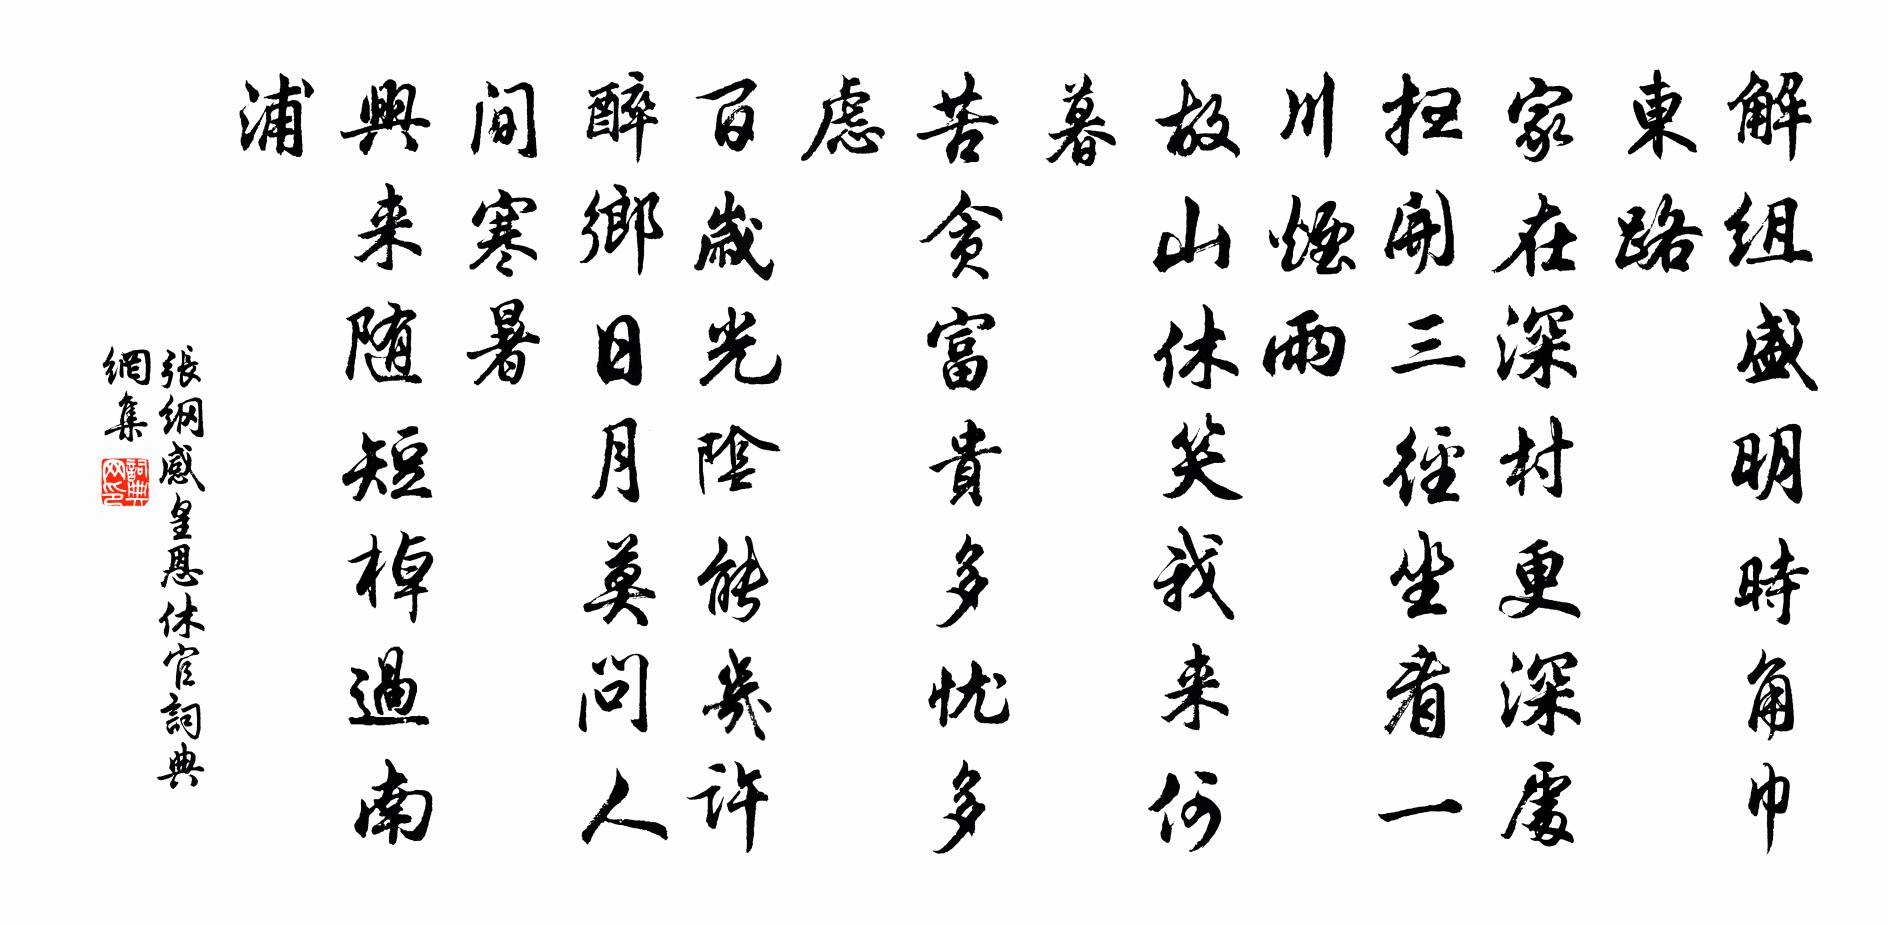 解組盛明時角巾
東路
家在深村更深處
扭開三徑坐看一
川煙雨
故山休笑我来何
暮
苦貪富貴多忧多
慮
百歲光陰能幾許
醉鄉日月莫問人
間寒暑
興来随短棹過南
浦
張綱感皇恩休官詞典
網集
詞典网印